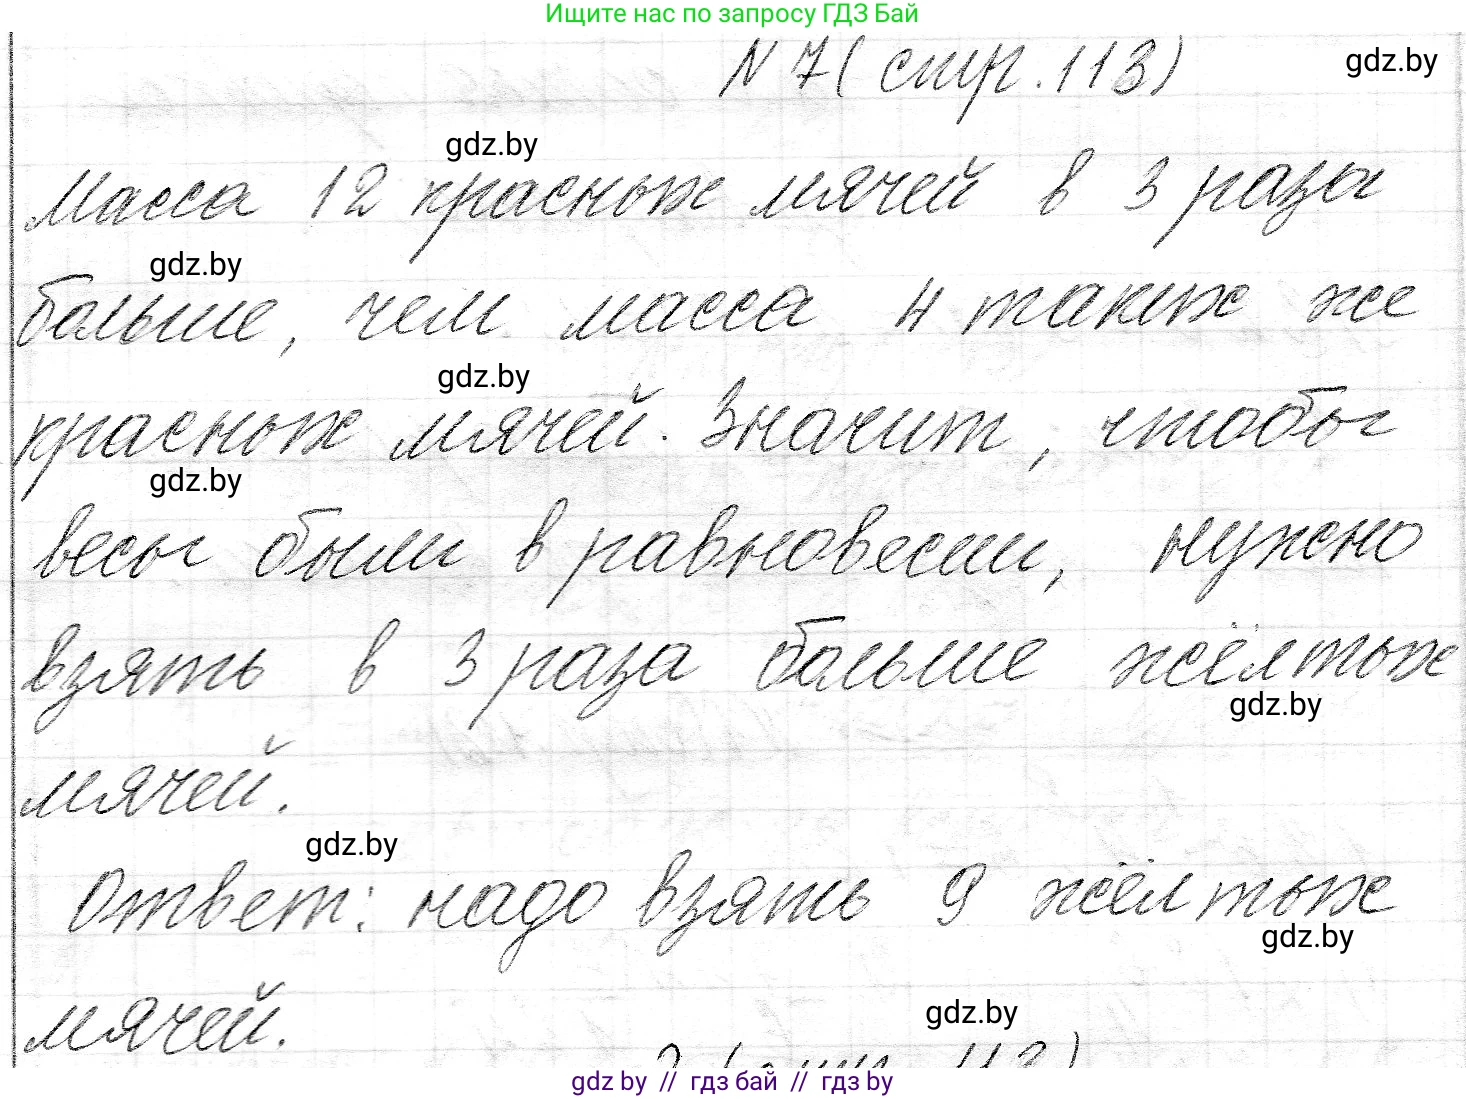 Ищите нас по запросу ГДЗ Бай
N 7 ( стр. 113)
gdz.by
gdz.by
Масса 12 красных мячей в 3 раза
gdz.by
больше, чем масса 4 таких же
gdz.by
красных мячей. Значит, чтобы
gdz.by
весы были в равновесии, нужно
взять в 3 раза больше жёлтых
gdz.by
мячей.
gdz.by
Ответ: надо взять 9 жёлтых
gdz.by
мячей.
gdz.by
gdz by // гдз бай // гдз by